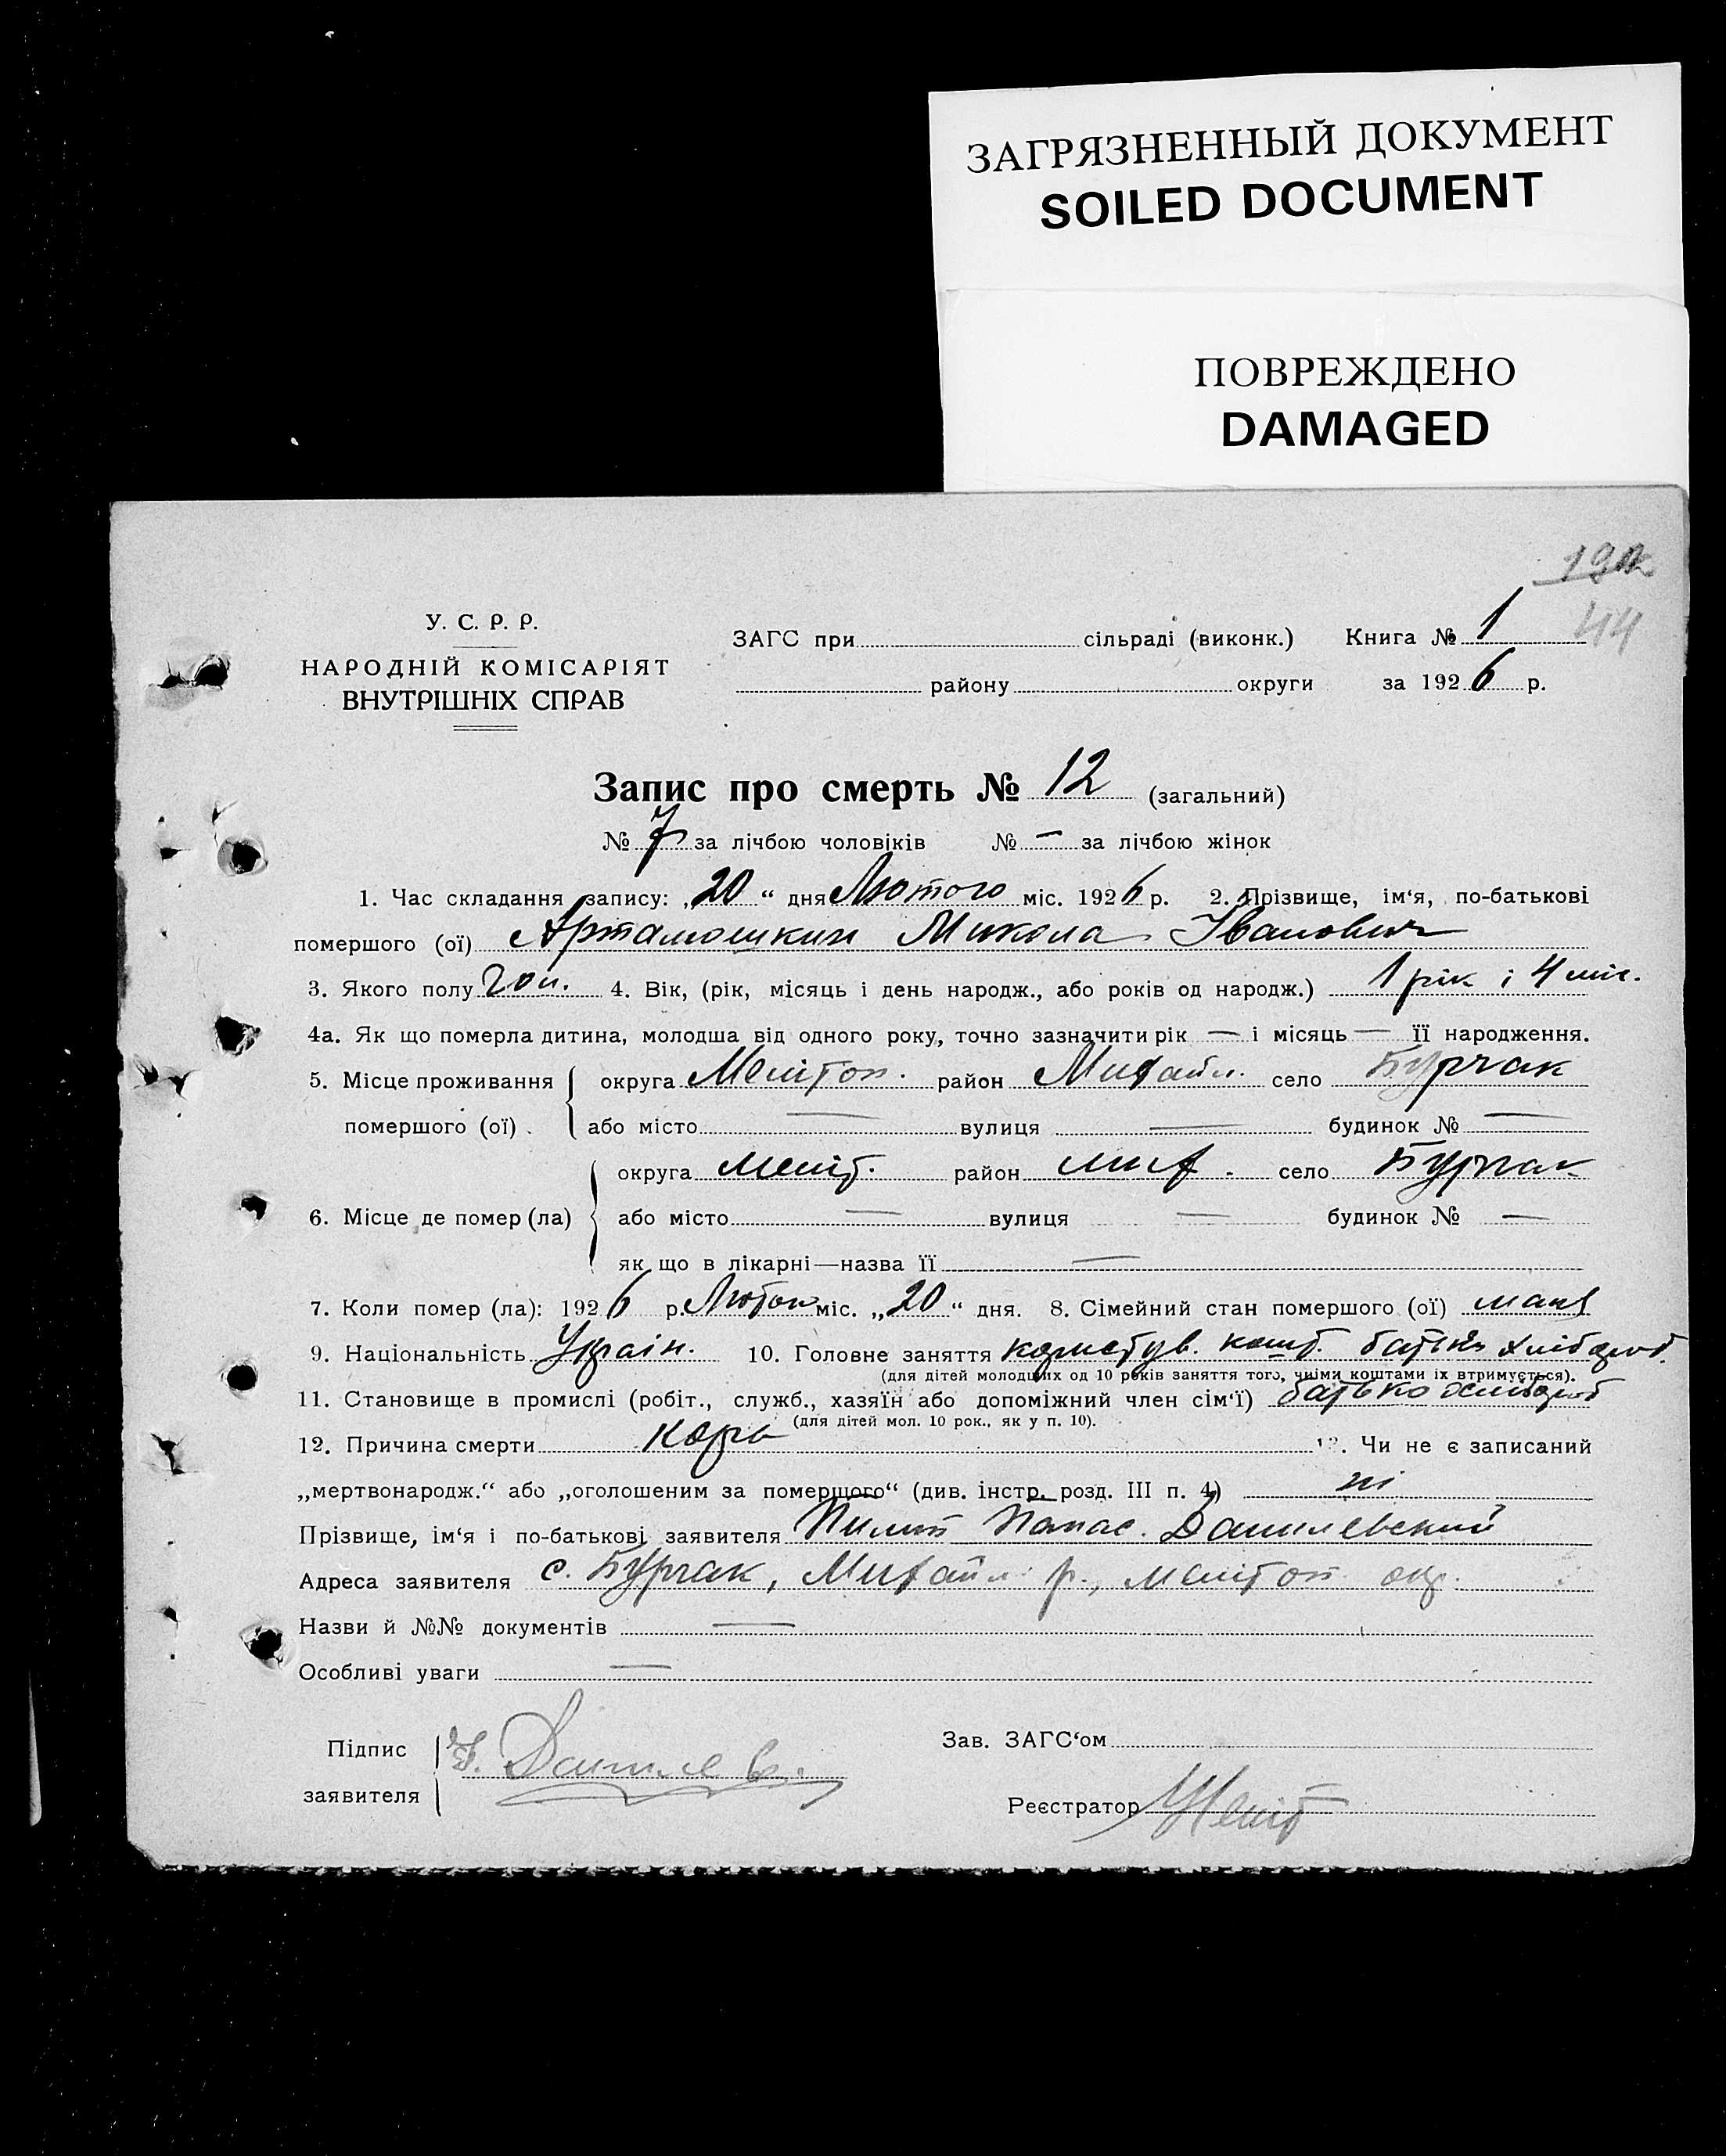 ЗАГРЯЗНЕННЫЙ ДОКУМЕНТ
SOILED DOCUMENT
ПОВРЕЖДЕНО
DAMAGED
44
У. С. Р. Р.
НАРОДНІЙ КОМІСАРІЯТ
ВНУТРІШНІХ СПРАВ
ЗАГС при сільраді (виконк.) Книга № 1
району округи за 1926 р.
Запис про смерть № 12 (загальний)
№ 7 за лічбою чоловіків № — за лічбою жінок
1. Час складання запису: „20“ дня Лютого міс. 1926 р. 2. Прізвище, ім‘я, по-батькові
помершого (ої) Артамошкин Микола Іванович
3. Якого полу чол. 4. Вік, (рік, місяць і день народж., або років од народж.) 1 рік і 4 міс.
4а. Як що померла дитина, молодша від одного року, точно зазначити рік — і місяць — її народження.
5. Місце проживання помершого (ої) округа Мелітоп. район Михайл. село Бурчак
або місто — вулиця — будинок № —
6. Місце де помер (ла) округа Меліт. район мих. село Бурчак
або місто — вулиця — будинок № —
як що в лікарні—назва її —
7. Коли помер (ла): 1926 р. Лютого міс. „20“ дня. 8. Сімейний стан помершого (ої)
9. Національність Україн. 10. Головне заняття користув. кошт. батька хлібороб.
(для дітей молодших од 10 років заняття того, чиїми коштами їх втримується).
11. Становище в промислі (робіт., служб., хазяїн або допоміжний член сім‘ї) батько хлібороб
(для дітей мол. 10 рок., як у п. 10).
12. Причина смерти Кор 13. Чи не є записаний
„мертвонародж.“ або „оголошеним за померщого“ (див. інстр. розд. III п. 4) ні
Прізвище, ім‘я і по-батькові заявителя Пилип Панас. Данилевский
Адреса заявителя с. Бурчак, Михайл. р., мелітоп. окр.
Назви й №№ документів —
Особливі уваги —
Підпис заявителя Данилев. Зав. ЗАГС‘ом
Реєстратор